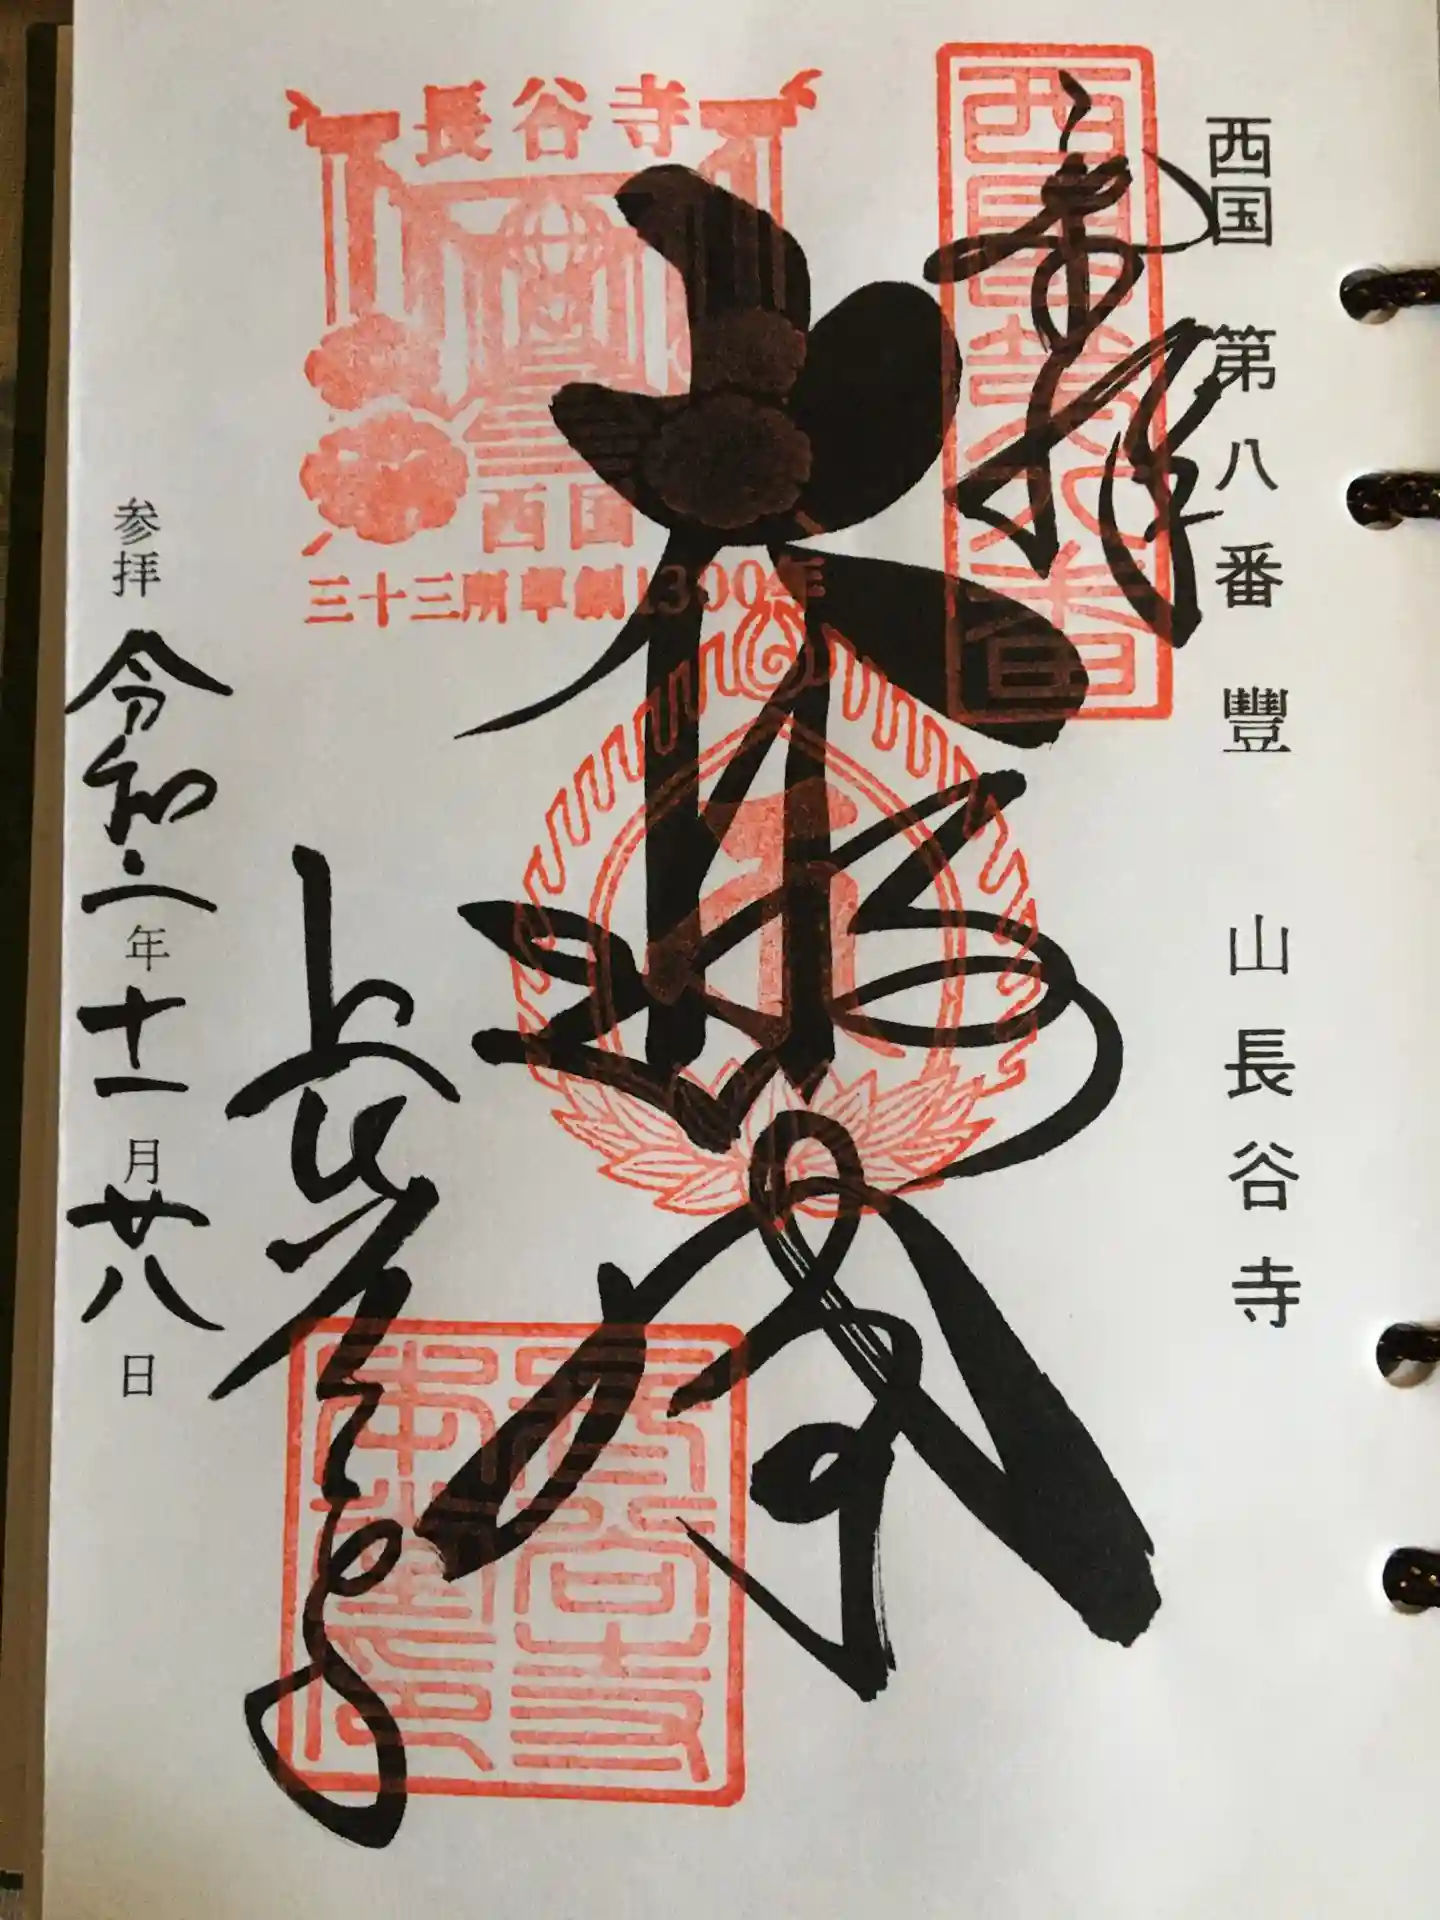 西国 第八番 豊山 長谷寺
奉拝
西国第八番
大悲閣
長谷寺
西国
三十三所草創1300年
長谷寺
長谷寺本堂印
参拝 令和二年十一月廿八日